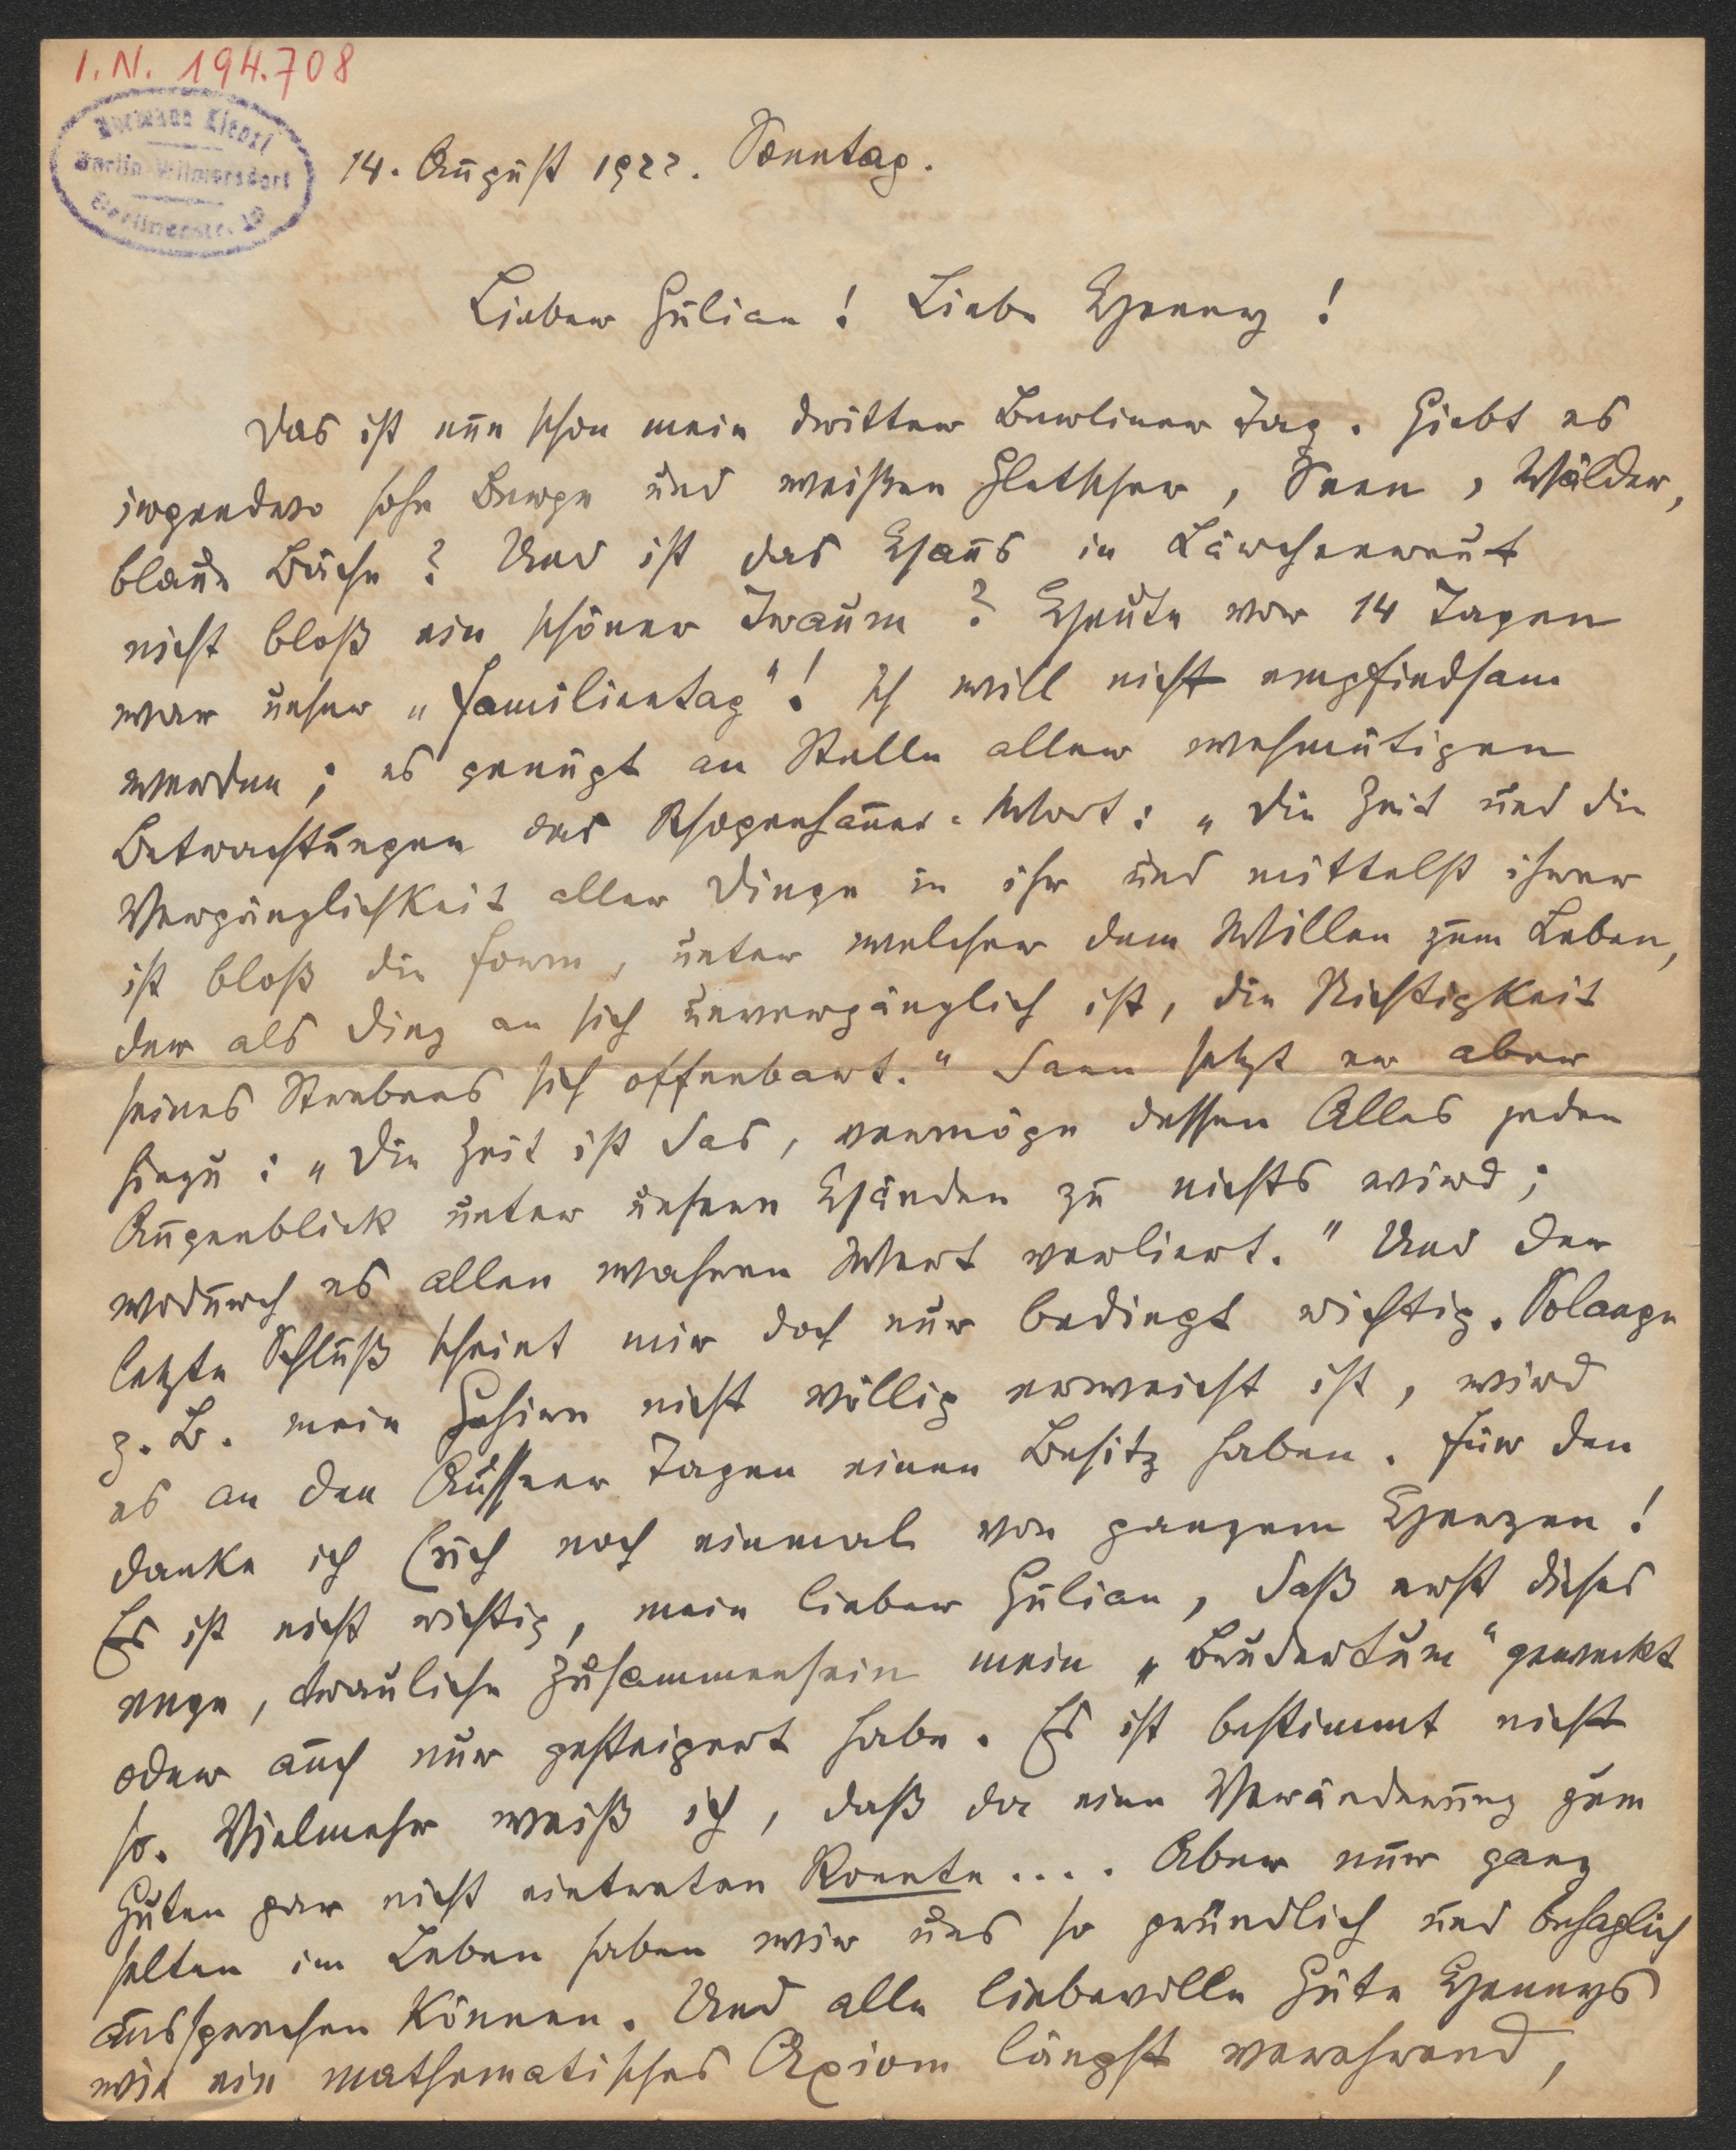 I.N. 194.708
Hermann Kienzl
Berlin-Wilmersdorf
Berlinerstr. 19
14. August 1922. Sonntag.
Lieber Julian! Liebe Henny!
Das ist nun schon mein dritter Berliner Tag. Giebt es
irgendwo hohe Berge und weißen Gletscher, Seen, Wälder,
blaue Bäche? Und ist das Haus in Lärchenreut
nicht bloß ein schöner Traum? Heute vor 14 Tagen
war unser „Familientag“! Ich will nicht empfindsam
werden; es genügt an Stelle aller wehmütigen
Betrachtungen das Schopenhauer-Wort: „Die Zeit und die
Vergänglichkeit aller Dinge in ihr und mittelst ihrer
ist bloß die Form, unter welcher dem Willen zum Leben,
der als Ding an sich unvergänglich ist, die Nichtigkeit
seines Strebens sich offenbart.“ Dann setzt er aber
hinzu: „Die Zeit ist das, vermöge dessen Alles jeden
Augenblick unter unsern Händen zu nichts wird;
wodurch es allen wahren Wert verliert.“ Und der
letzte Schluß scheint mir doch nur bedingt richtig. Solange
z. B. mein Gehirn nicht völlig erweicht ist, wird
es an den Ausseer Tagen einen Besitz haben. Für den
danke ich Euch noch einmal von ganzem Herzen!
Es ist nicht richtig, mein lieber Julian, daß erst dieses
enge, trauliche Zusammensein mein „Brudertum“ geweckt
oder auch nur gesteigert habe. Es ist bestimmt nicht
so. Vielmehr weiß ich, daß da eine Veränderung zum
Guten gar nicht eintreten konnte.... Aber nur ganz
selten im Leben haben wir uns so gründlich und behaglich
aussprechen können. Und alle liebevolle Güte Hennys
wie ein mathematisches Axiom längst verehrend,